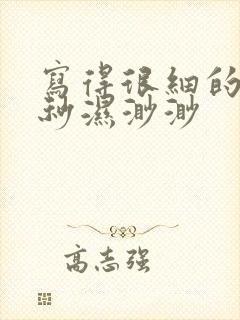 寫得很細的
秒濕渺渺
高志强